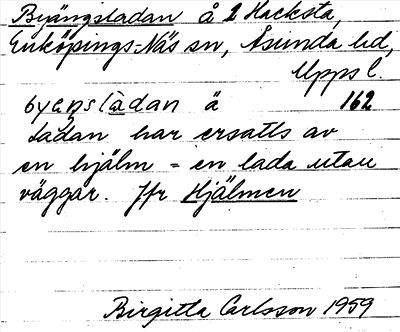 Byängsladan å 2 Hacksta,
Enköpings-Näs sn, Åsunda hd,
Upps l.
byeŋsla̱dan ä 162
Ladan har ersatts av
en hjälm = en lada utan
väggar. Jfr Hjälmen
Birgitta Carlsson 1959